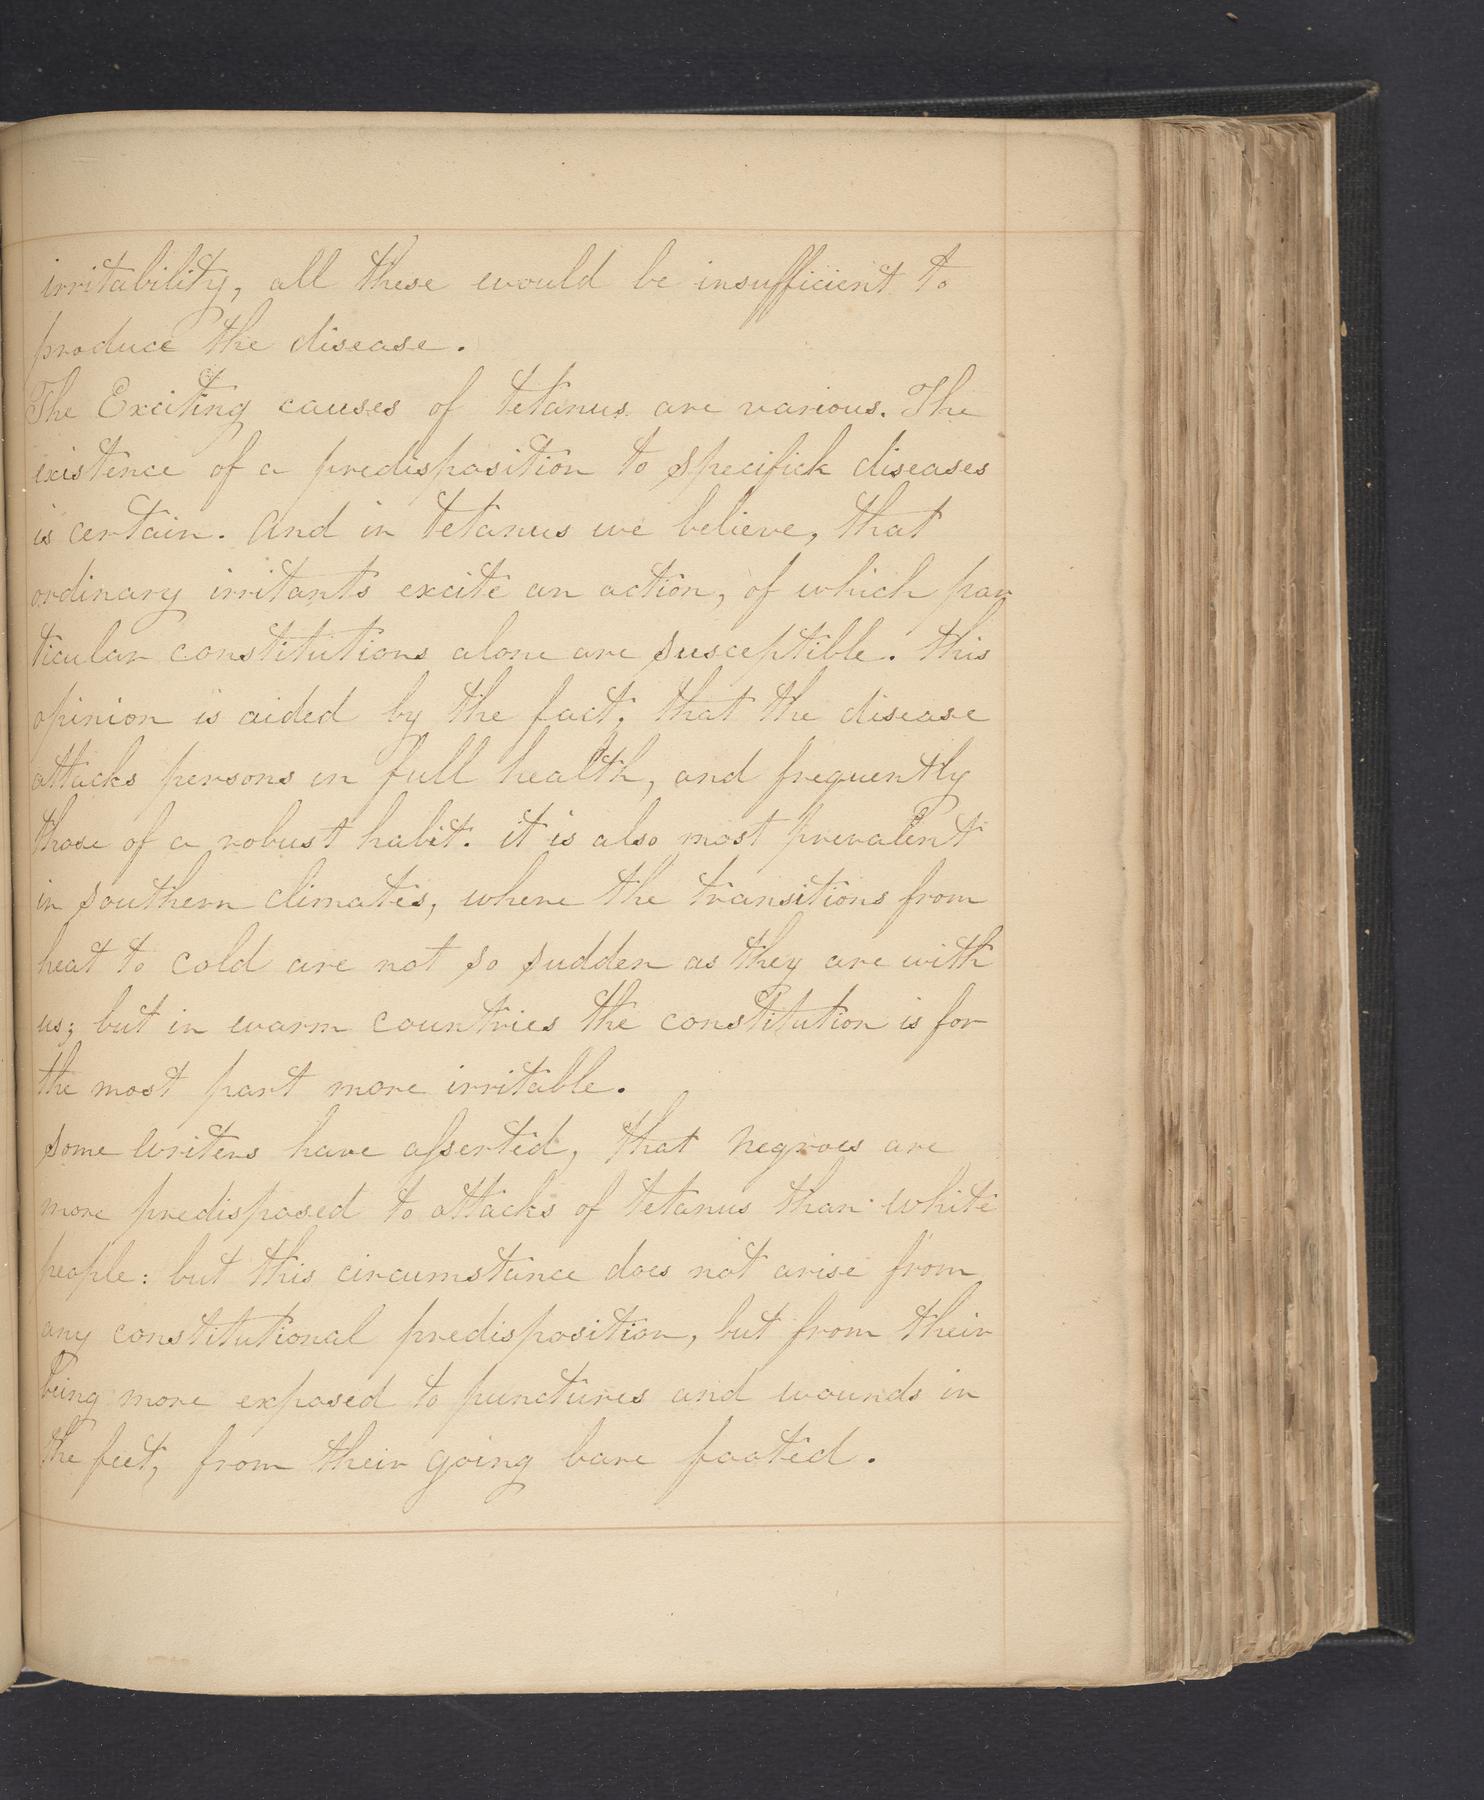 irritability, all these would be insufficient to
produce the disease.
The Exciting causes of tetanus are various. The
existence of a predisposition to specifick diseases
is certain. And in tetanus we believe, that
ordinary irritants excite an action, of which par
ticular constitutions alone are susceptible. this
opinion is aided by the fact, that the disease
attacks persons in full health, and frequently
those of a robust habit. it is also most prevalent
in southern climates, where the transitions from
heat to cold are not so sudden as they are with
us; but in warm countries the constitution is for
the most part more irritable.
some writers have asserted, that negroes are
more predisposed to attacks of tetanus than white
people: but this circumstance does not arise from
any constitutional predisposition, but from their
being more exposed to punctures and wounds in
the feet, from their going bare footed.